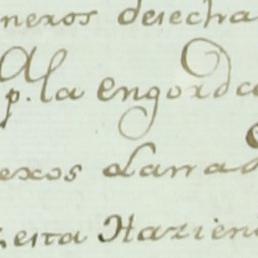 nexos desecha
p.ª la engorda
exos
esta Hazien